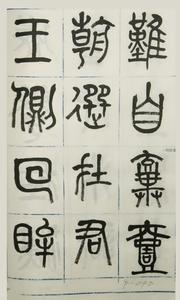 難自棄壹
朝選在君
王側回眸